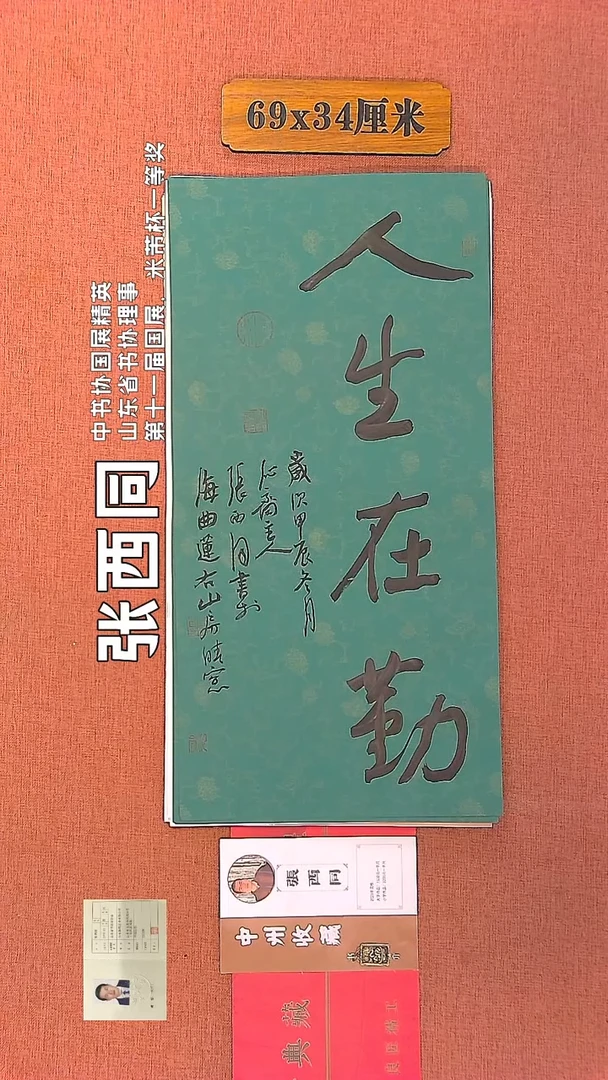 69x34厘米
人生在勤
歲次甲辰冬月
張西同書於
海曲蓮右山房晴窓
中书协国展精英
山东省书协理事
第十一届国展、米芾杯一等奖
张西同
張西同
中州收藏
典藏